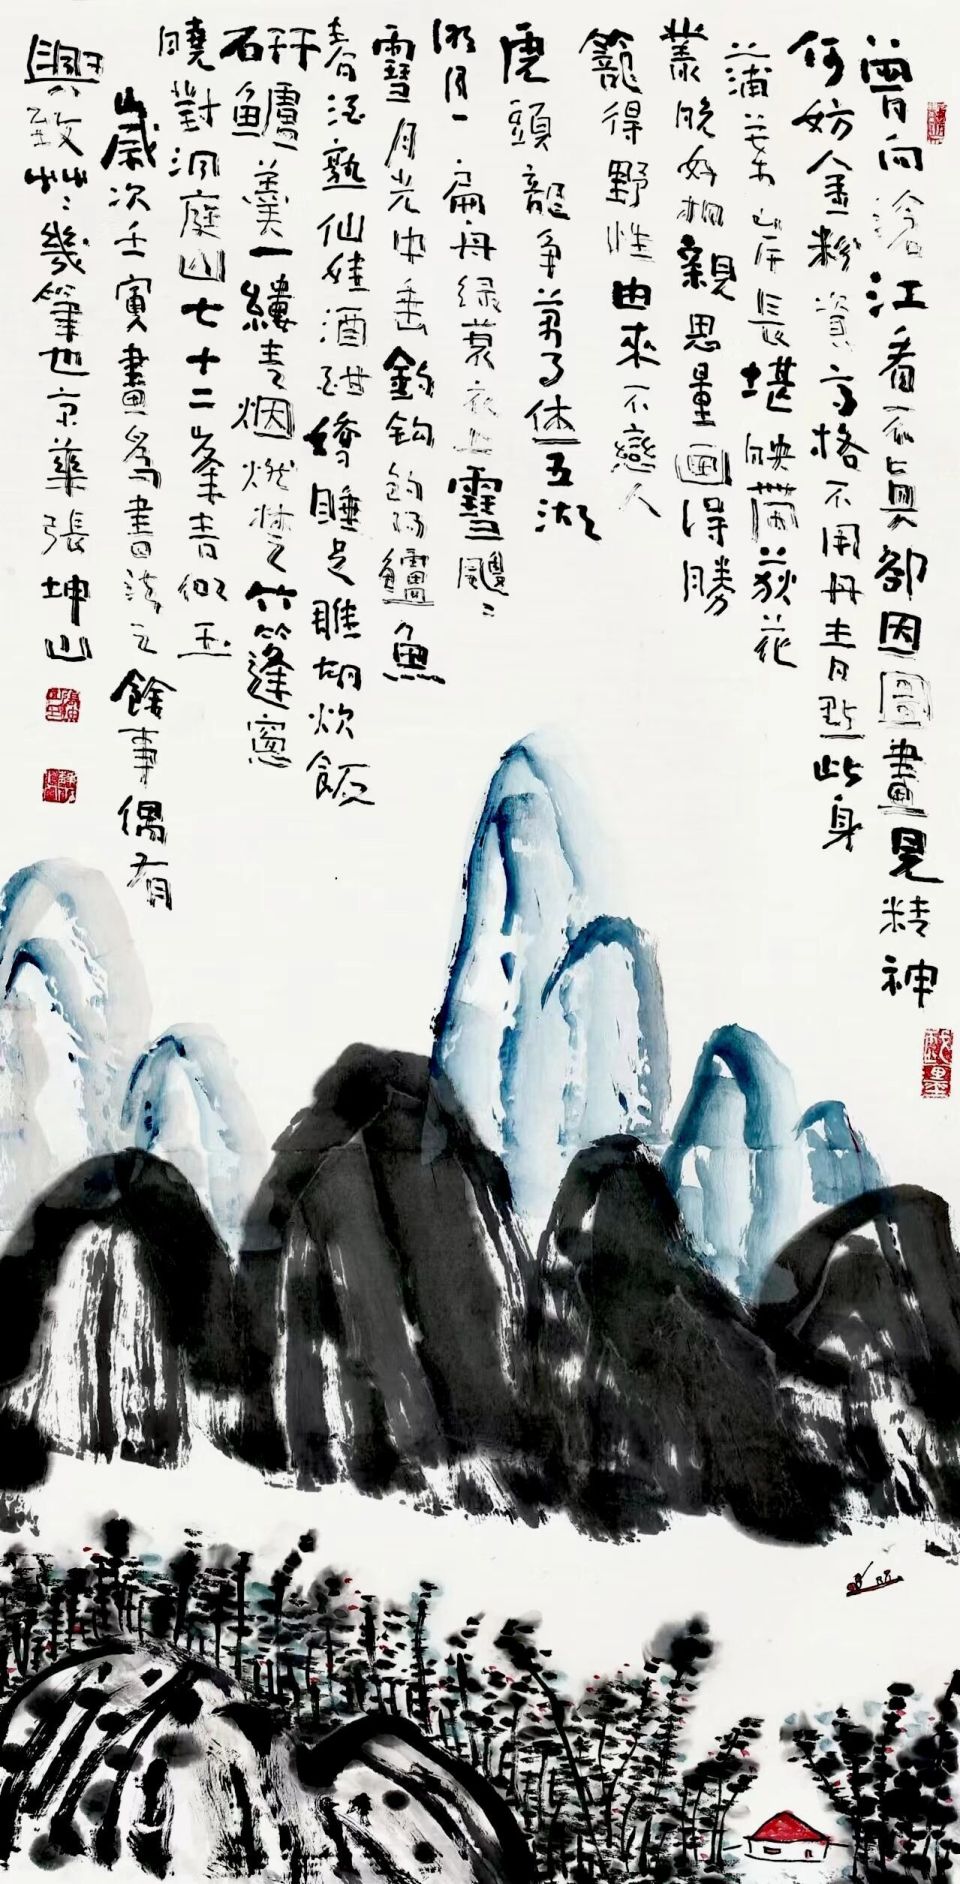 曾向滄江看不真却因圖畫見精神
何妨金粉資高格不用丹青點此身
蒲葉岸長堪映帶荻花
叢晚好相親思量畫得勝
籠得野性由來不戀人
虎頭龍争萬事休五湖
明月一扁舟绿蓑衣上雪飕〻
雪月光中垂釣鈎釣得鱸魚
春酒熟仙娃酒睡足雕胡炊飯
鱸羹一縷青烟燃楚竹篷窗
曉對洞庭山七十二峯青似玉
歲次壬寅畫爲書法之餘事偶有
興致艸〻幾筆也京華張坤山